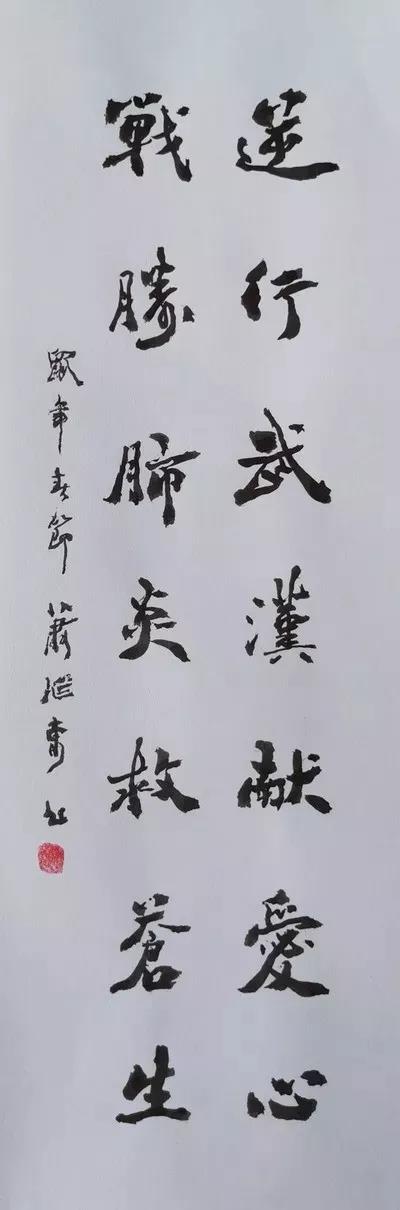 逆行武漢献愛心
戰勝肺炎救蒼生
鼠年春節蕭继书